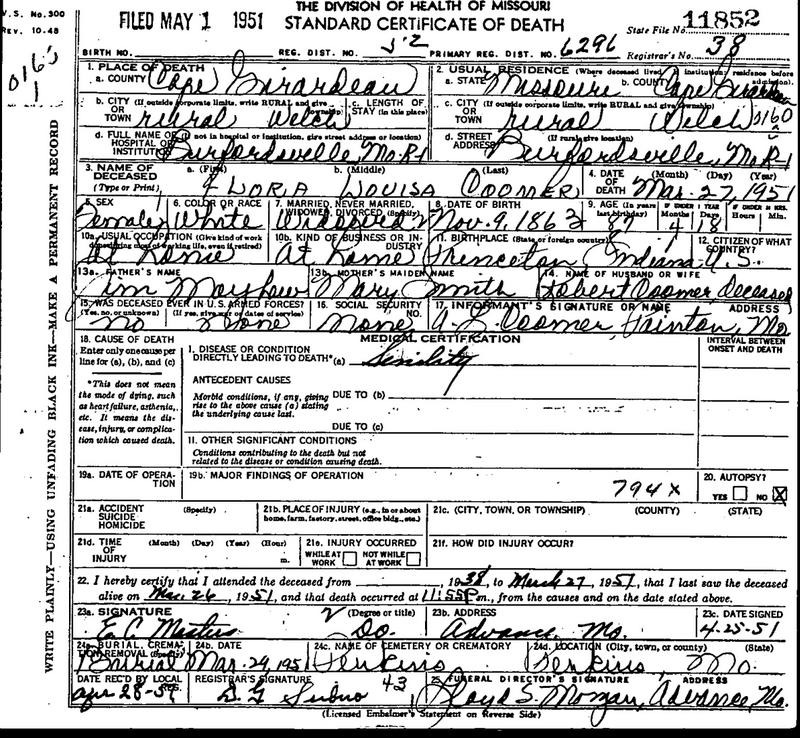 V. S. No. 300
REV. 10-48
THE DIVISION OF HEALTH OF MISSOURI
FILED MAY 1 1951 STANDARD CERTIFICATE OF DEATH
State File No. 11852
BIRTH NO. REG. DIST. NO. 52 PRIMARY REG. DIST. NO. 6296 Registrar's No. 38
0165
1
WRITE PLAINLY—USING UNFADING BLACK INK—MAKE A PERMANENT RECORD
1. PLACE OF DEATH
a. COUNTY Cape Girardeau
2. USUAL RESIDENCE (Where deceased lived. If institution: residence before admission).
a. STATE Missouri b. COUNTY Cape Girardeau
b. CITY (If outside corporate limits, write RURAL and give township)
OR TOWN rural Welch
c. LENGTH OF STAY (in this place)
c. CITY (If outside corporate limits, write RURAL and give township)
OR TOWN rural Welch 0160
d. FULL NAME OF (If not in hospital or institution, give street address or location)
HOSPITAL OR INSTITUTION Burfordsville, Mo R-1
d. STREET ADDRESS (If rural, give location)
Burfordsville, Mo R-1
3. NAME OF DECEASED (Type or Print)
a. (First) b. (Middle) c. (Last)
FLORA LOUISA COOMER
4. DATE OF DEATH (Month) (Day) (Year)
Mar. 27, 1951
5. SEX
Female
6. COLOR OR RACE
White
7. MARRIED, NEVER MARRIED, WIDOWED, DIVORCED (Specify)
Widowed
8. DATE OF BIRTH
Nov. 9, 1863
9. AGE (In years last birthday) IF UNDER 1 YEAR Months Days IF UNDER 24 HRS. Hours Min.
87 4 18
10a. USUAL OCCUPATION (Give kind of work done during most of working life, even if retired)
At Home
10b. KIND OF BUSINESS OR INDUSTRY
At Home
11. BIRTHPLACE (State or foreign country)
Princeton Indiana
12. CITIZEN OF WHAT COUNTRY?
U.S.
13a. FATHER'S NAME
Jim Mayhew
13b. MOTHER'S MAIDEN NAME
Mary Smith
14. NAME OF HUSBAND OR WIFE
Robert Coomer deceased
15. WAS DECEASED EVER IN U.S. ARMED FORCES?
(Yes, no, or unknown) (If yes, give war or dates of service)
No None
16. SOCIAL SECURITY NO.
None
17. INFORMANT'S SIGNATURE OR NAME ADDRESS
A. L. Coomer, Painton, Mo
18. CAUSE OF DEATH
Enter only one cause per line for (a), (b), and (c)
MEDICAL CERTIFICATION
INTERVAL BETWEEN ONSET AND DEATH
I. DISEASE OR CONDITION
DIRECTLY LEADING TO DEATH*(a) Senility
*This does not mean the mode of dying, such as heart failure, asthenia, etc. It means the disease, injury, or complication which caused death.
ANTECEDENT CAUSES
Morbid conditions, if any, giving rise to the above cause (a) stating the underlying cause last.
DUE TO (b)
DUE TO (c)
II. OTHER SIGNIFICANT CONDITIONS
Conditions contributing to the death but not related to the disease or condition causing death.
19a. DATE OF OPERATION
19b. MAJOR FINDINGS OF OPERATION
794 X
20. AUTOPSY?
YES NO X
21a. ACCIDENT SUICIDE HOMICIDE (Specify)
21b. PLACE OF INJURY (e.g., in or about home, farm, factory, street, office bldg., etc.)
21c. (CITY, TOWN, OR TOWNSHIP) (COUNTY) (STATE)
21d. TIME OF INJURY (Month) (Day) (Year) (Hour) m.
21e. INJURY OCCURRED
WHILE AT WORK NOT WHILE AT WORK
21f. HOW DID INJURY OCCUR?
22. I hereby certify that I attended the deceased from 1938, to March 27, 1951, that I last saw the deceased
alive on Mar. 26, 1951, and that death occurred at 11:55P m., from the causes and on the date stated above.
23a. SIGNATURE (Degree or title)
E. C. Masters Do.
23b. ADDRESS
Advance, Mo.
23c. DATE SIGNED
4-25-51
24a. BURIAL, CREMATION, REMOVAL (Specify)
Burial
24b. DATE
Mar. 29, 1951
24c. NAME OF CEMETERY OR CREMATORY
Perkins
24d. LOCATION (City, town, or county) (State)
Perkins, Mo.
DATE REC'D BY LOCAL REG.
Apr 28-51
REGISTRAR'S SIGNATURE
43
25. FUNERAL DIRECTOR'S SIGNATURE ADDRESS
Lloyd S. Morgan, Advance, Mo.
(Licensed Embalmer's Statement on Reverse Side)